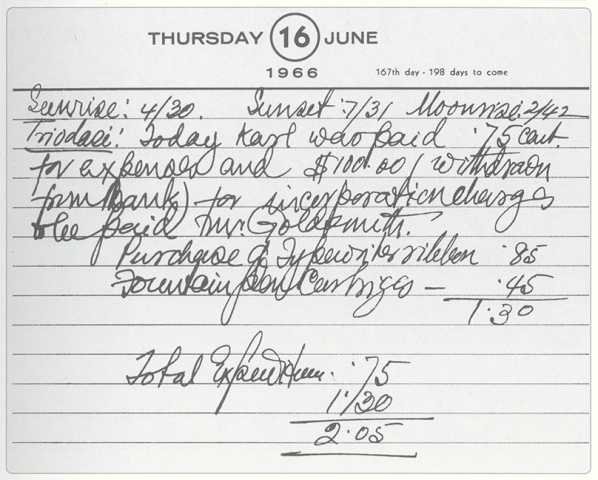 THURSDAY 16 JUNE
1966 167th day - 198 days to come
Sunrise: 4/30. Sunset 7/31 Moonrise: 2/42
Today Karl was paid .75 cent.
for expenses and $100.00 (withdrawn
from Bank) for incorporation charges
to be paid Mr. Goldsmith.
Purchase of Typewriter ribbon .85
Fountain pen Cartriges — .45
1.30
Total Expenditure. .75
1/30
2.05